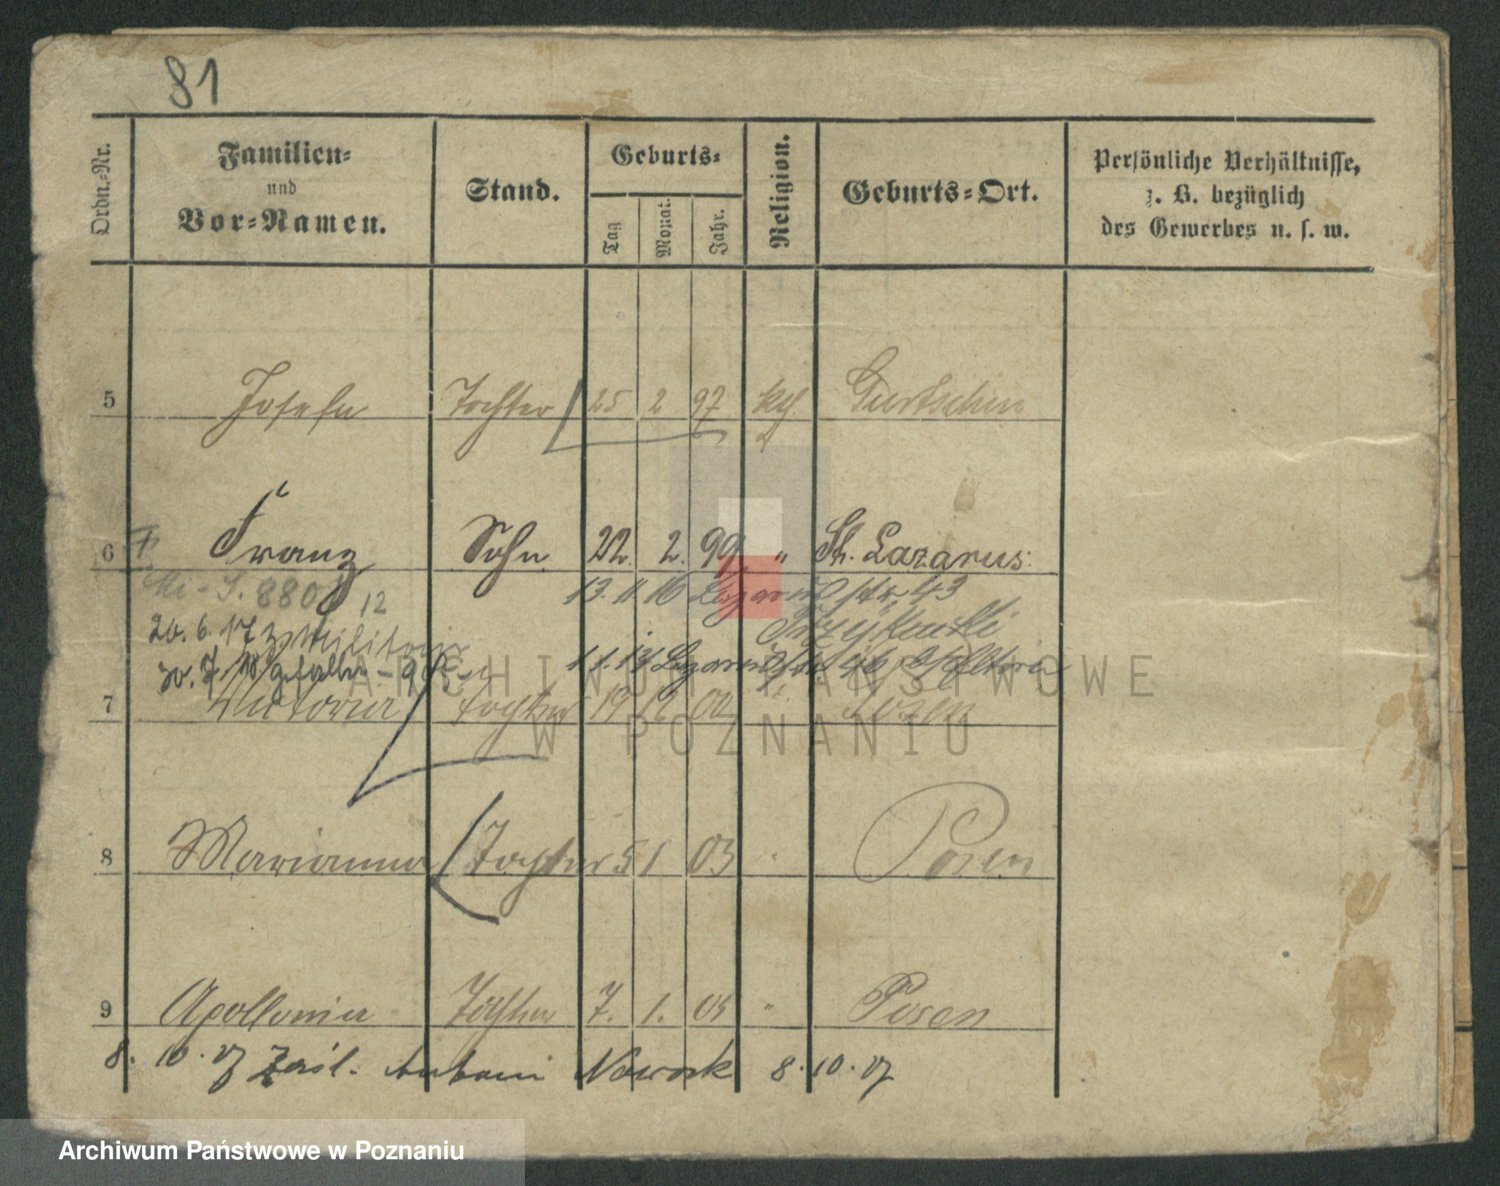 81
Ordn.-Nr.
Familien- und Vor-Namen.
Stand.
Geburts-
Tag
Monat.
Jahr.
Religion.
Geburts-Ort.
Persönliche Verhältnisse,
z. B. bezüglich
des Gewerbes u. s. w.
5 Josefa Tochter 25 2 97 kth. Gurtschin
6 Franz Sohn 22. 2. 99. " St. Lazarus
880 12
13 11 16 Lazarusstr 43
20. 6. 17 z Militair
30. 7. 18 gefallen
11. 13 Lazarusstr
7 Victoria Tochter 19 12 00 " Posen
8 Marianna Tochter 5 1 03 " Posen
9 Apollonia Tochter 7. 1. 05 " Posen
8. 10. 07 Antoni Nowak 8. 10. 07
ARCHIWUM PAŃSTWOWE
W POZNANIU
Archiwum Państwowe w Poznaniu